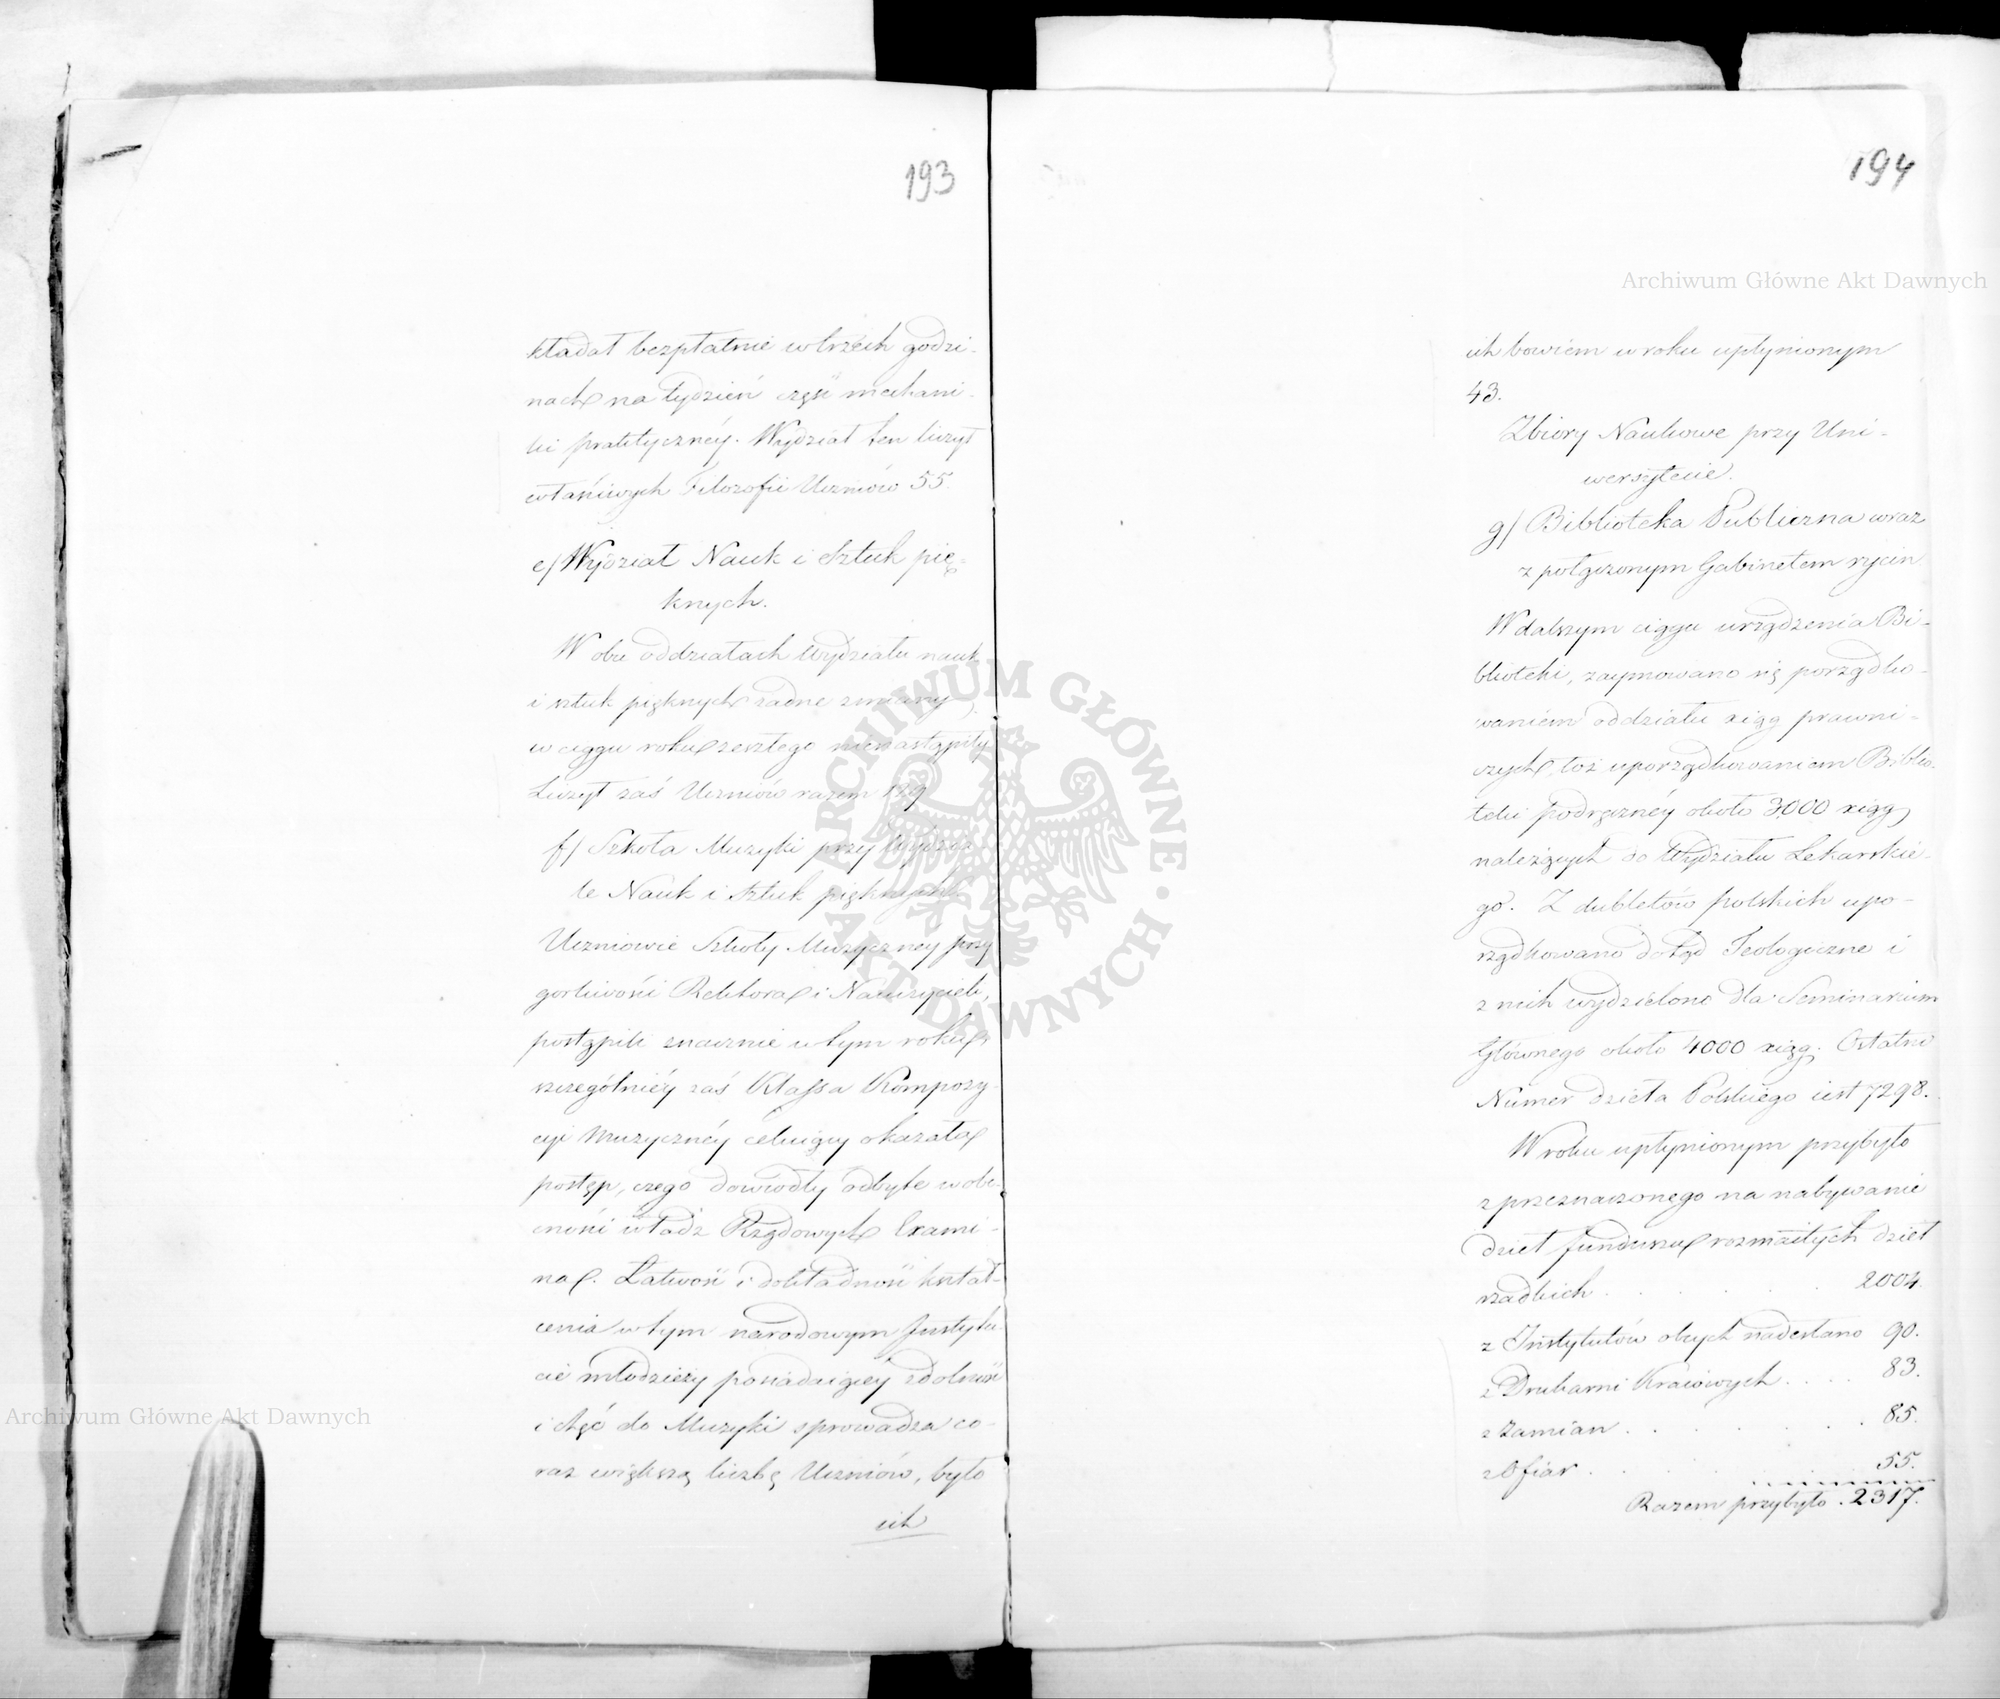 193
kładał bezpłatnie w trzech godzi-
nach na tydzień część mechani-
ki praktycznéy. Wydział ten liczył
właściwych Filozofii Uczniów 55.
e/ Wydział Nauk i Sztuk pię-
knych.
W obu oddziałach Wydziału nauk
i sztuk pięknych żadne zmiany
w ciągu roku zeszłego nienastąpiły
Liczył zaś Uczniów razem 129
f/ Szkoła Muzyki przy Wydzia-
le Nauk i Sztuk pięknych
Uczniowie Szkoły Muzycznéy przy
gorliwości Rektora i Nauczycieli,
postąpili znacznie w tym roku,
szczególniéy zaś Klassa Kompozy-
cyi Muzycznéy celuiący okazała
postęp, czego dowiodły odbyte w obe-
cności władz Rządowych Exami-
na. Łatwość i dokładność kształ-
cenia w tym narodowym Instytu-
cie młodzieży posiadaiącey zdolność
i chęć do Muzyki sprowadza co-
raz większą liczbę Uczniów, było
ich
194
ich bowiem w roku upłynionym
43.
Zbiory Naukowe przy Uni-
wersytecie.
g/ Biblioteka Publiczna wraz
z połączonym Gabinetem rycin
W dalszym ciągu urządzenia Bi-
blioteki, zaymowano się porządko-
waniem oddziału xiąg prawni-
czych, toż uporządkowaniem Biblio-
teki podręcznéy około 3000 xiąg
należących do Wydziału Lekarskie-
go. Z dubletów polskich upo-
rządkowano dotąd Teologiczne i
z nich wydzielono dla Seminarium
Głównego około 4000 xiąg. Ostatni
Numer dzieła Polskiego iest 7298.
W roku upłynionym przybyło
z przeznaczonego na nabywanie
dzieł funduszu rozmaitych dzieł
rzadkich . . . . . . 2004.
z Instytutów obcych nadesłano 90.
z Drukarni Kraiowych . . . . 83.
z Zamian . . . . . . 85.
z Ofiar . . . . . . 55.
Razem przybyło . 2317.
Archiwum Główne Akt Dawnych
Archiwum Główne Akt Dawnych
ARCHIWUM GŁÓWNE AKT DAWNYCH